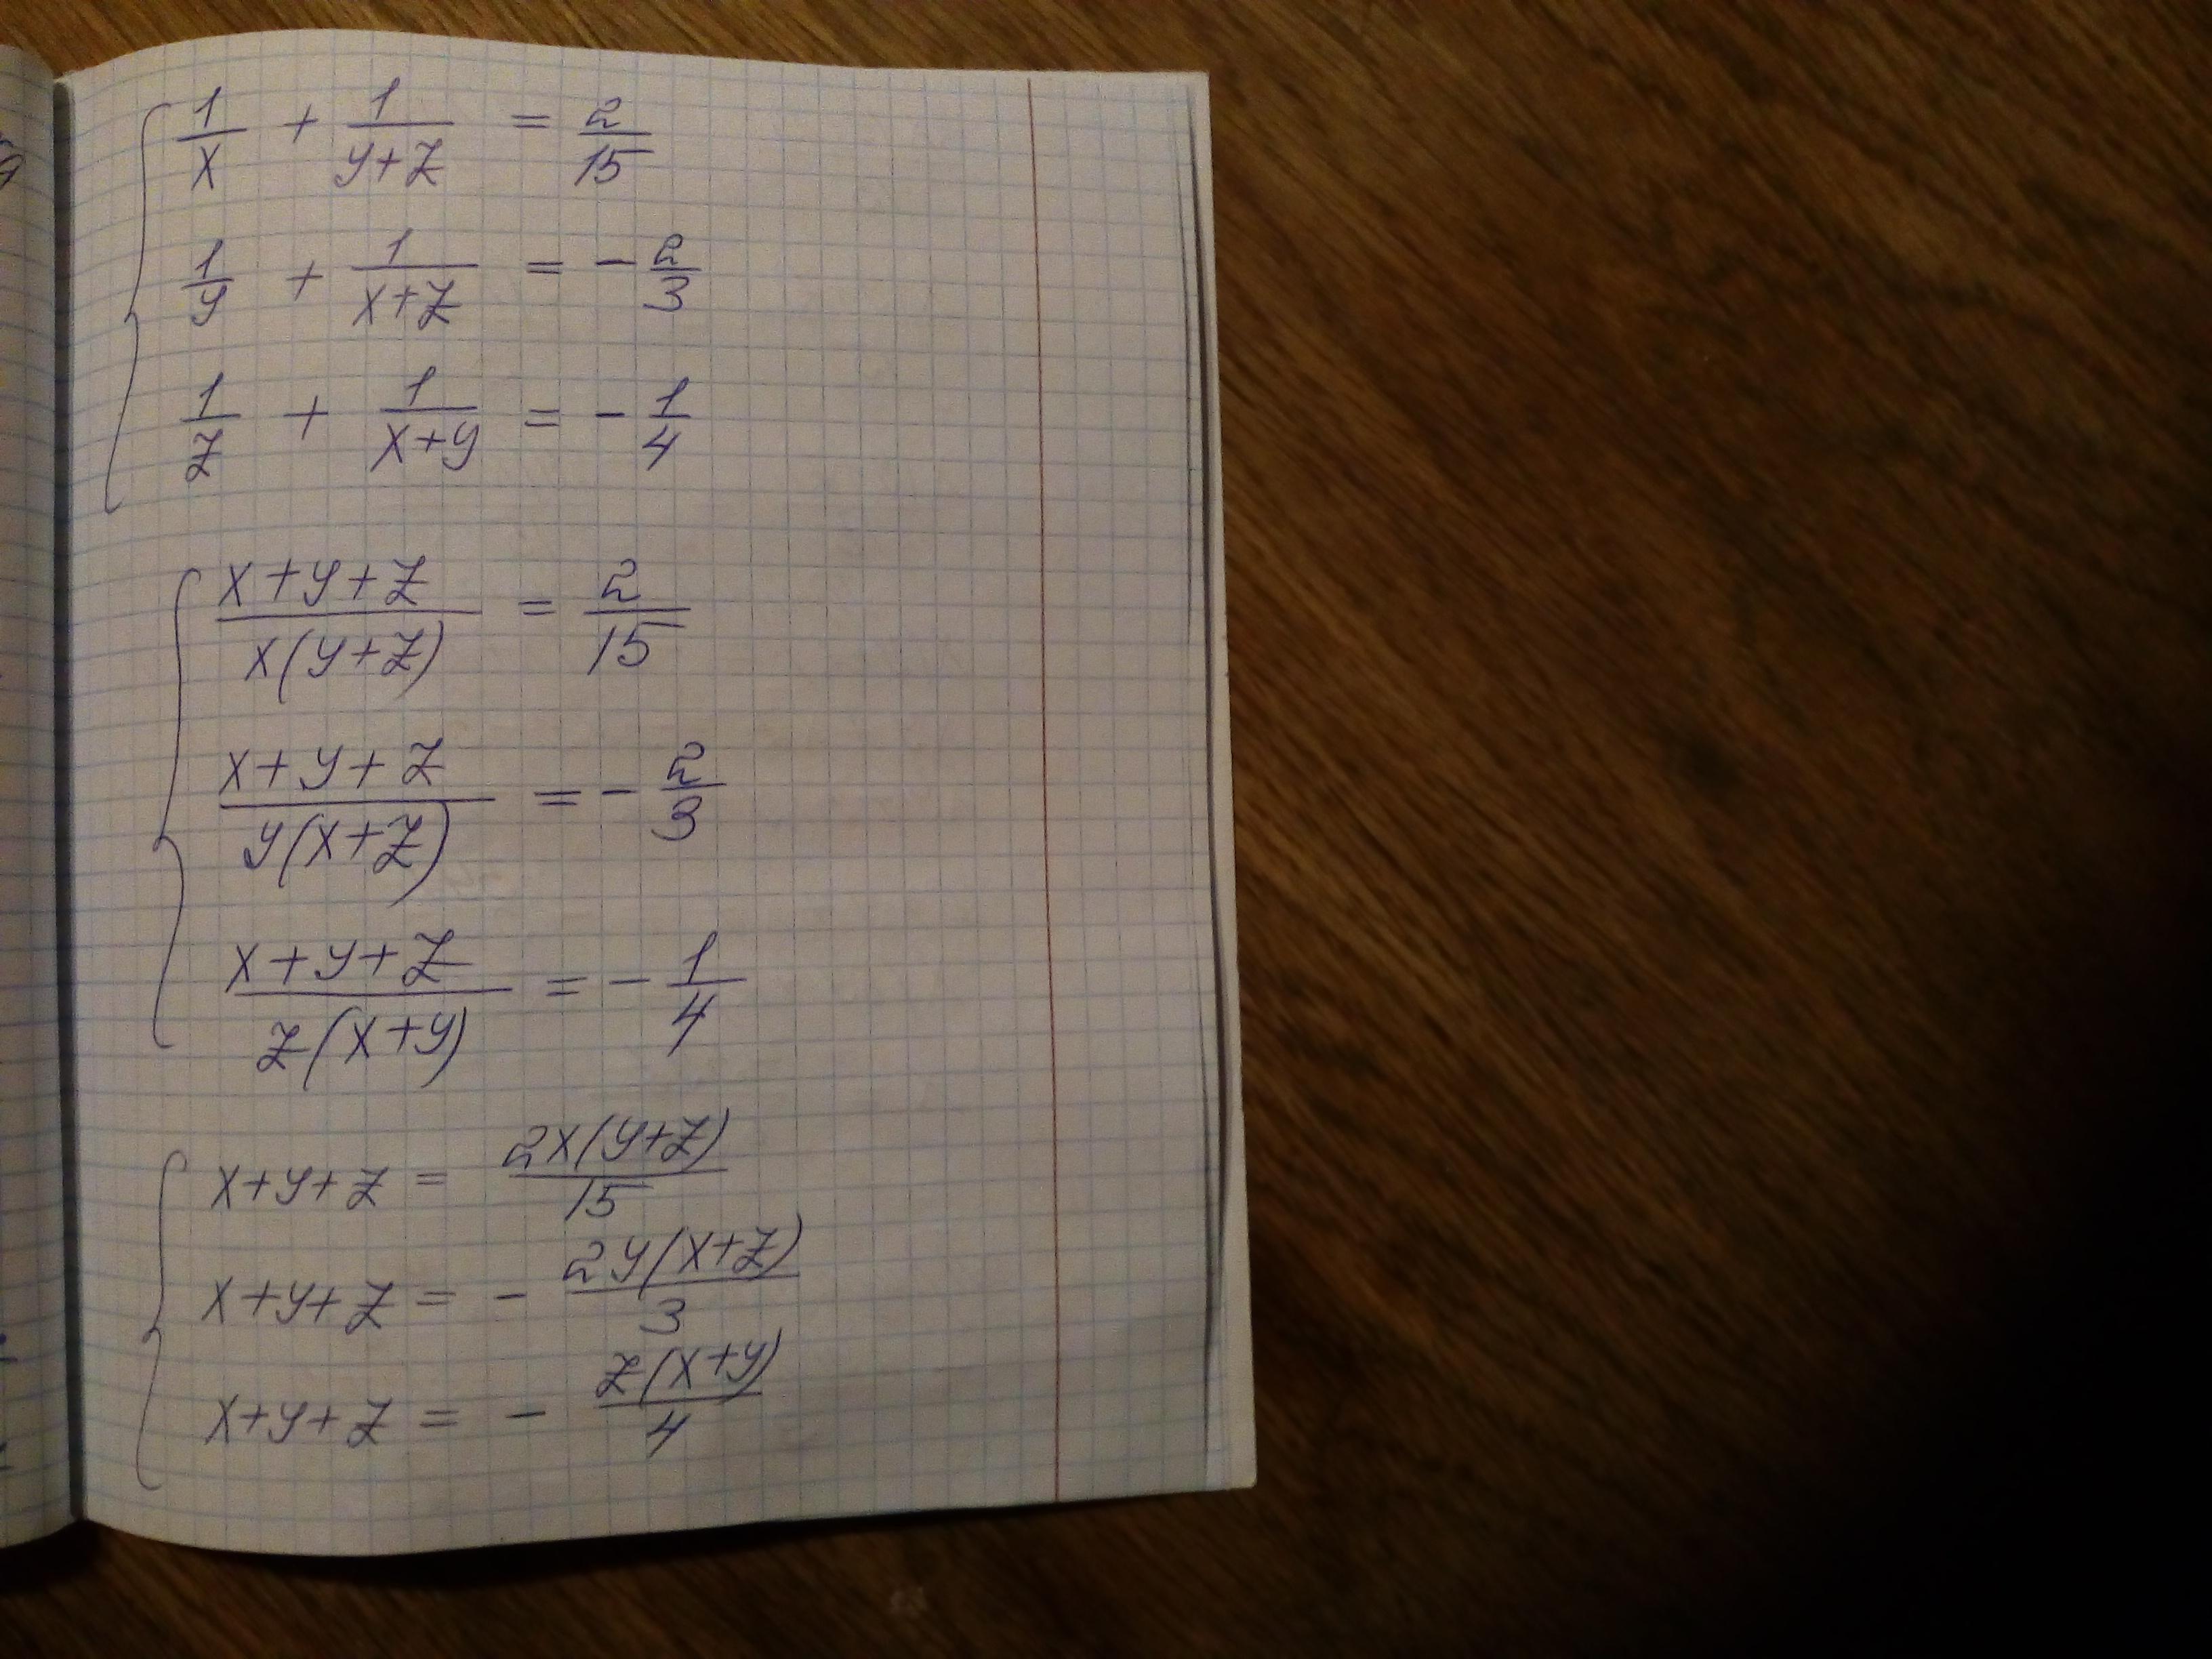 1/x + 1/(y+z) = 2/15
1/y + 1/(x+z) = -2/3
1/z + 1/(x+y) = -1/4
(x+y+z)/(x(y+z)) = 2/15
(x+y+z)/(y(x+z)) = -2/3
(x+y+z)/(z(x+y)) = -1/4
x+y+z = 2x(y+z)/15
x+y+z = - 2y(x+z)/3
x+y+z = - z(x+y)/4